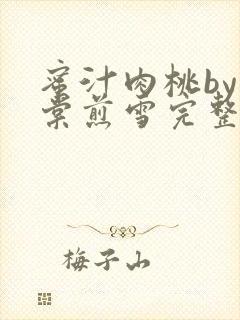 蜜汁肉桃by
棠煎雪完整
梅子山